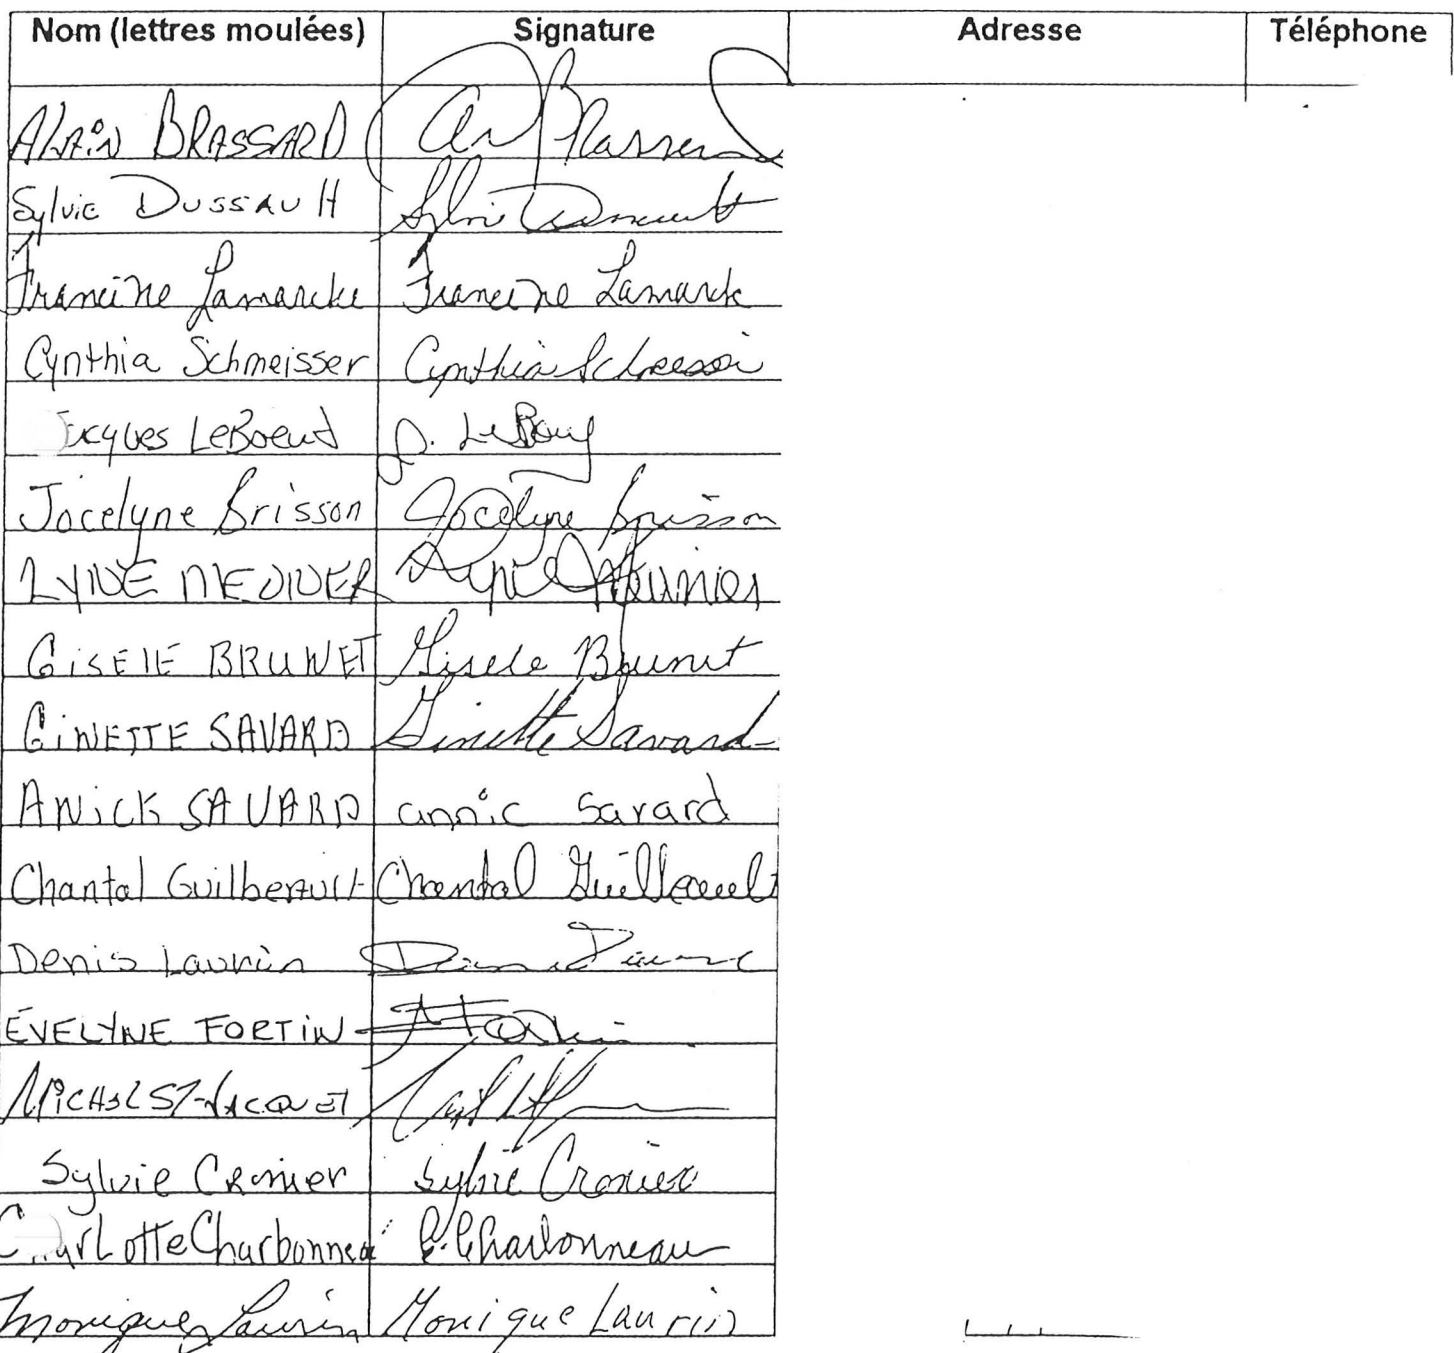 Nom (lettres moulées) Signature Adresse Téléphone
ALAiN BRASSARD
Sylvie DUSSAULT Sylvie Dussault
Francine Lamarche Francine Lamarche
Cynthia Schmeisser Cynthia Schmeisser
Jacques LeBoeuf J. LeBoeuf
Jocelyne Brisson Jocelyne Brisson
LYNE MEUNIER Lyne Meunier
GiSElE BRUNET Gisele Brunet
GiNETTE SAVARD Ginette Savard
ANiCK SAVARD annic Savard
Chantal Guilbeault Chantal Guilbeault
Denis Laurin
ÉVELYNE FORTiN
MiCHEL ST-JACQUES
Sylvie Cronier Sylvie Cronier
CharLotte Charbonneau C. Charbonneau
Monique Laurin Monique Laurin